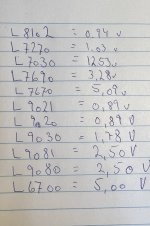 L8102 = 0.94 v
L7270 = 1.03 v
L7030 = 1.253v
L7690 = 3,28v
L7670 = 5,09v
L9021 = 0,89v
L9020 = 0,89 V
L9030 = 1,78 V
L9081 = 2,50 V
L9080 = 2,50 V
L6700 = 5,00 V